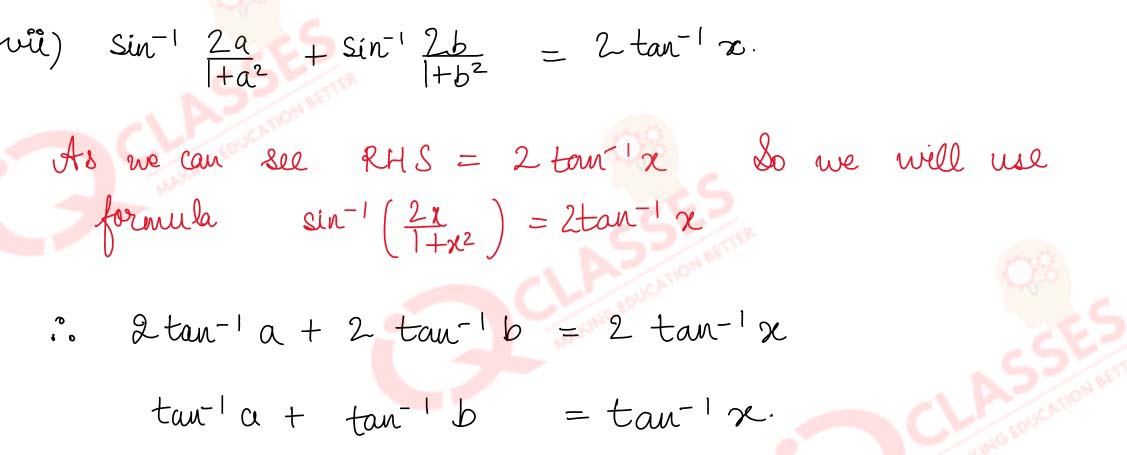 vii) sin⁻¹ 2a/(1+a²) + sin⁻¹ 2b/(1+b²) = 2 tan⁻¹ x.
As we can see RHS = 2 tan⁻¹ x So we will use
formula sin⁻¹ (2x/(1+x²)) = 2tan⁻¹ x
∴ 2tan⁻¹ a + 2 tan⁻¹ b = 2 tan⁻¹ x
tan⁻¹ a + tan⁻¹ b = tan⁻¹ x.
CLASSES
MAKING EDUCATION BETTER
CLASSES
MAKING EDUCATION BETTER
CLASSES
MAKING EDUCATION BETT